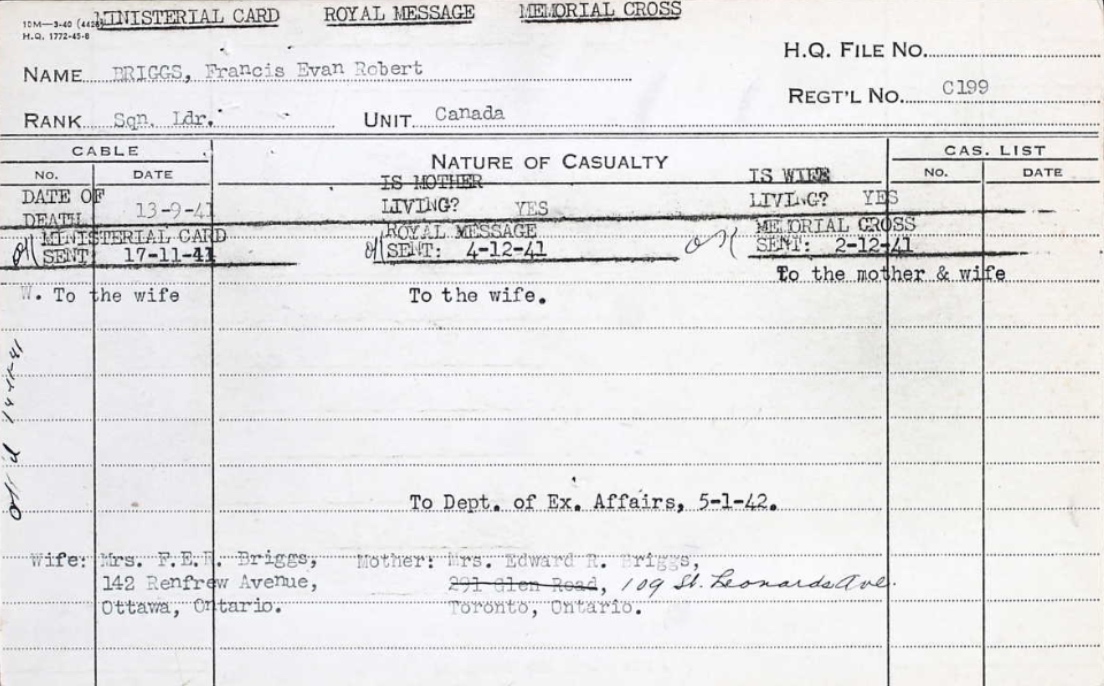 MINISTERIAL CARD ROYAL MESSAGE MEMORIAL CROSS
H.Q. 1772-45-8
H.Q. FILE NO.
NAME BRIGGS, Francis Evan Robert
REGT'L NO. C199
RANK Sqn. Ldr. UNIT Canada
CABLE NATURE OF CASUALTY CAS. LIST
NO. DATE IS MOTHER IS WIFE NO. DATE
DATE OF LIVING? YES LIVING? YES
DEATH 13-9-41
MINISTERIAL CARD ROYAL MESSAGE MEMORIAL CROSS
SENT: 17-11-41 SENT: 4-12-41 SENT: 2-12-41
To the mother & wife
W. To the wife To the wife.
To Dept. of Ex. Affairs, 5-1-42.
Wife: Mrs. F.E.R. Briggs, Mother: Mrs. Edward R. Briggs,
142 Renfrew Avenue, 291 Glen Road, 109 St. Leonards Ave.
Ottawa, Ontario. Toronto, Ontario.